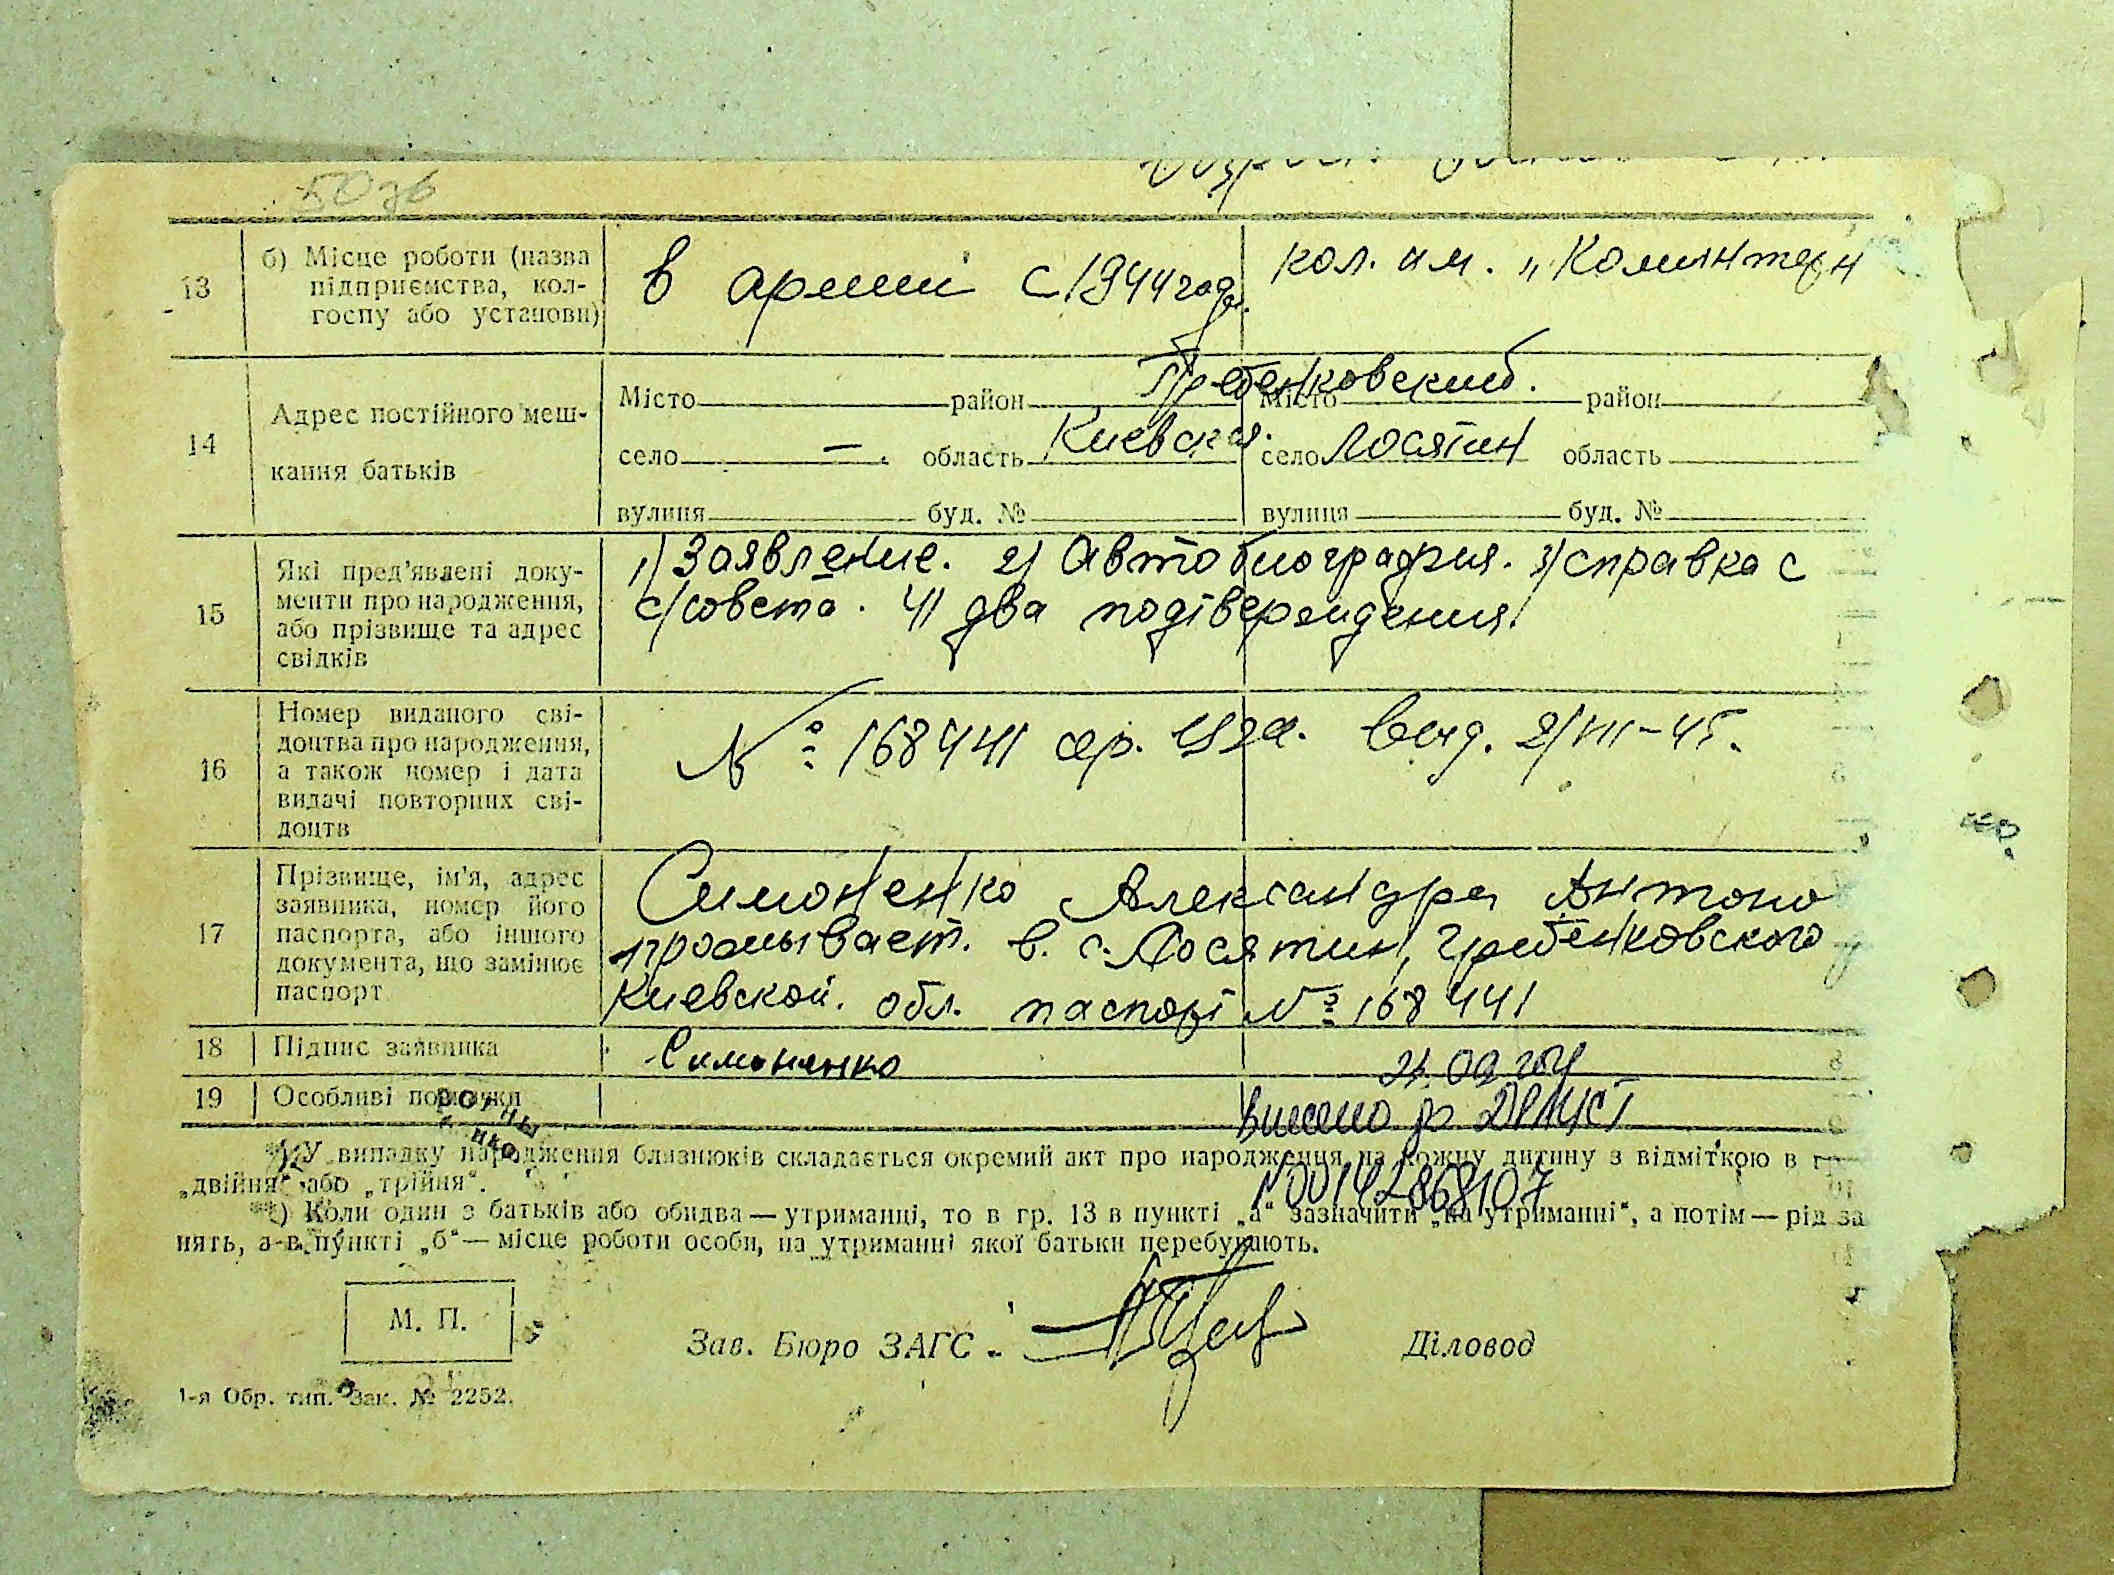 13 б) Місце роботи (назва підприємства, колгоспу або установи)
в армии с 1944 года.
кол. им. „Коминтерн
14 Адрес постійного мешкання батьків
Місто район Гребенковский. Місто район
село — область Киевская. село Лосятин область
вулиця буд. № вулиця буд. №
15 Які пред'явлені документи про народження, або прізвище та адрес свідків
1/ Заявление. 2/ Автобиография. 3/ справка с
с/совета. 4/ два подтверждения.
16 Номер виданого свідоцтва про народження, а також номер і дата видачі повторних свідоцтв
№ 168441 выд. 2/VIII-45.
17 Прізвище, ім'я, адрес заявника, номер його паспорта, або іншого документа, що замінює паспорт
Симоненко Александра Антоно
проживает. в. с. Лосятин, Гребенковского
Киевской. обл. паспорт № 168441
18 Підпис заявника
Симоненко
19 Особливі помітки
внесено до ДРАЦСГ
№00142868107
*) У випадку народження близнюків складається окремий акт про народження на кожну дитину з відміткою в гр
„двійня“ або „трійня“.
**) Коли один з батьків або обидва — утриманці, то в гр. 13 в пункті „а“ зазначити „на утриманні“, а потім — рід за
нять, а в пункті „б“ — місце роботи особи, на утриманні якої батьки перебувають.
М. П.
Зав. Бюро ЗАГС
Діловод
1-я Обр. тип. Зак. № 2252.